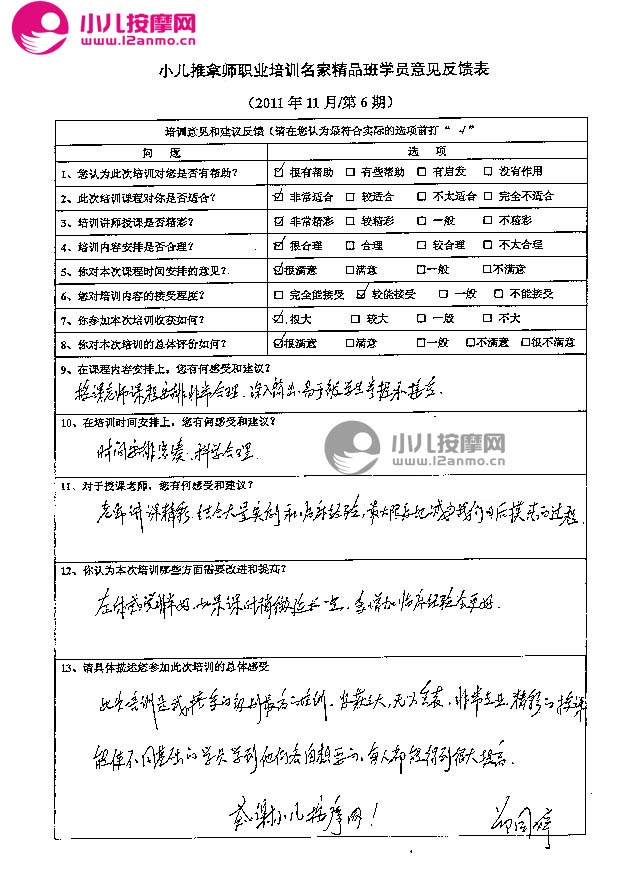 小儿按摩网
www.i2anmo.cn
小儿推拿师职业培训名家精品班学员意见反馈表
（2011 年 11 月/第 6 期）
培训意见和建议反馈（请在您认为最符合实际的选项前打“ √”
问 题 选 项
1、您认为此次培训对您是否有帮助？ ☑ 很有帮助 □ 有些帮助 □ 有启发 □ 没有作用
2、此次培训课程对你是否适合？ ☑ 非常适合 □ 较适合 □ 不太适合 □ 完全不适合
3、培训讲师授课是否精彩？ ☑ 非常精彩 □ 较精彩 □ 一般 □ 不精彩
4、培训内容安排是否合理？ ☑ 很合理 □ 合理 □ 较合理 □ 不太合理
5、你对本次课程时间安排的意见？ ☑很满意 □满意 □一般 □不满意
6、您对培训内容的接受程度？ □ 完全能接受 ☑ 较能接受 □ 一般 □ 不能接受
7、你参加本次培训收获如何？ ☑ 很大 □ 较大 □ 一般 □ 不大
8、你对本次培训的总体评价如何？ ☑很满意 □满意 □一般 □不满意 □很不满意
9、在课程内容安排上，您有何感受和建议？
授课老师课程安排非常合理、深入简出、易于被学员掌握和接受。
10、在培训时间安排上，您有何感受和建议？
时间安排紧凑、科学合理.
小儿按摩网
www.i2anmo.cn
11、对于授课老师，您有何感受和建议？
老师讲课精彩，结合大量实例和临床经验，最大限度地减少我们日后摸索的过程.
12、你认为本次培训哪些方面需要改进和提高？
总体感觉非常好，如果课时稍微延长一点，多增加临床经验会更好.
13、请具体描述您参加此次培训的总体感受
此次培训是我接受的 最 的培训. 非常专业，精彩的授课
能使不同基础的学员学到他们各自想要的，每人都能得到很大提高.
感谢小儿按摩网！